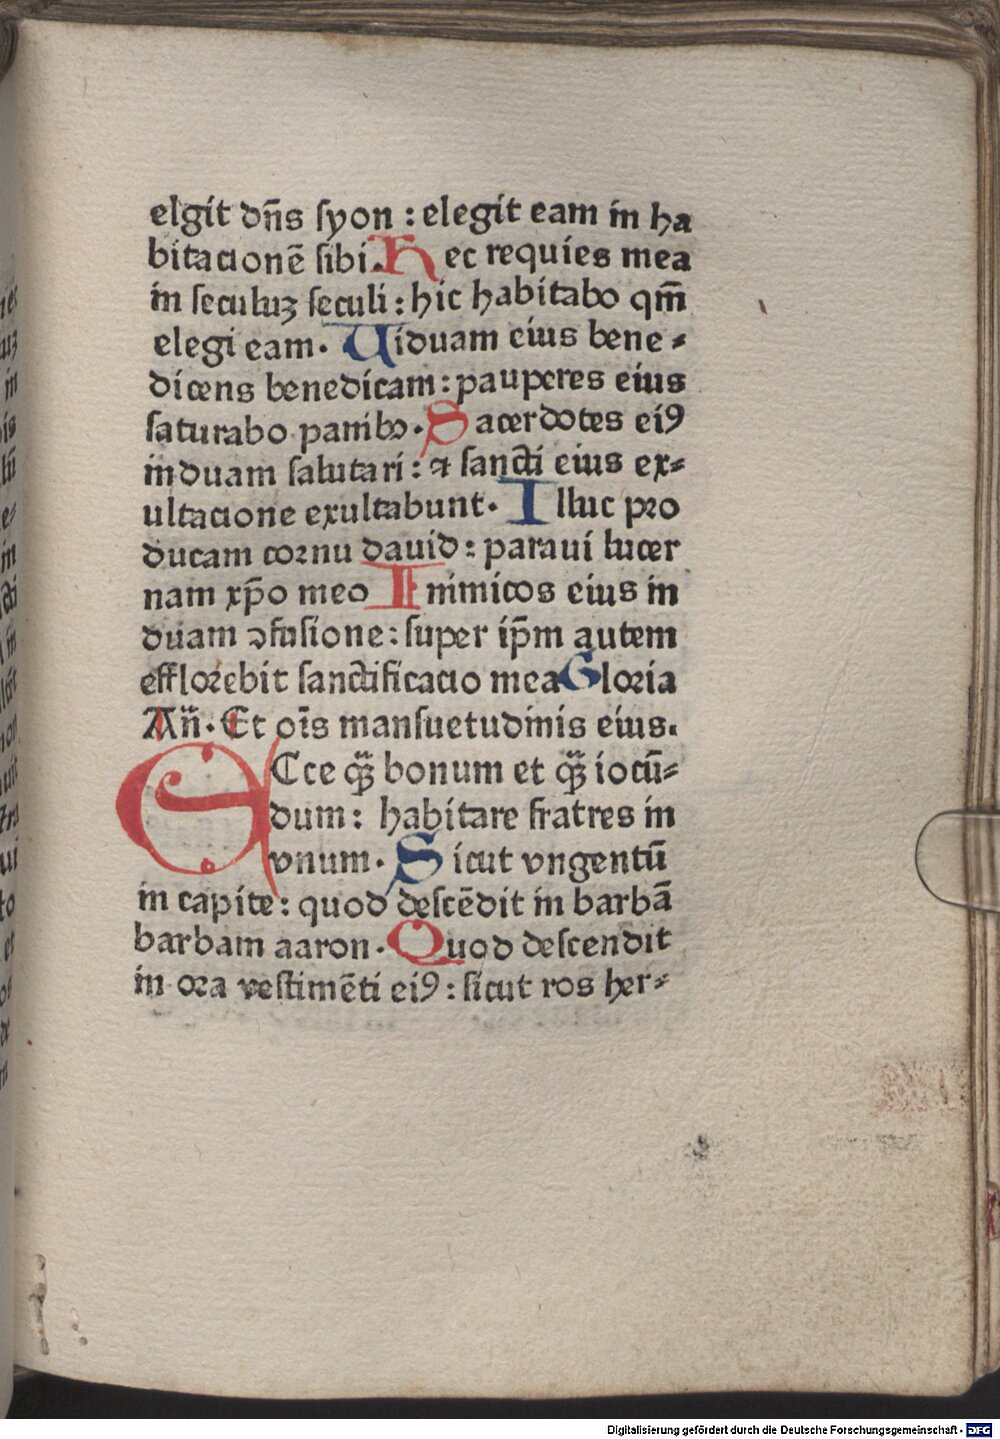 elgit dn̄s ſyon : elegit eam in ha
bitacionē ſibi. Hec requies mea
in ſeculuꝫ ſeculi : hic habitabo qm̄
elegi eam. Uiduam eius bene⸗
dicens benedicam : pauperes eius
ſaturabo panibꝫ. Sacerdotes eiꝰ
induam ſalutari : ⁊ ſancti eius ex⸗
ultacione exultabunt. Illuc pro
ducam coꝛnu dauid : paraui lucer
nam xp̄o meo Inimicos eius in
duam ↄfuſione : ſuper ip̄m autem
effloꝛebit ſanctificacio mea Gloꝛia
An̄. Et oīs manſuetudinis eius.
ECce qꝫ̄ bonum et qꝫ̄ iocū⸗
dum : habitare fratres in
vnum. Sicut vngentū
in capite : quod deſcēdit in barbā
barbam aaron. Quod deſcendit
in oꝛa veſtimēti eiꝰ : ſicut ros her⸗
Digitalisierung gefördert durch die Deutsche Forschungsgemeinschaft - DFG